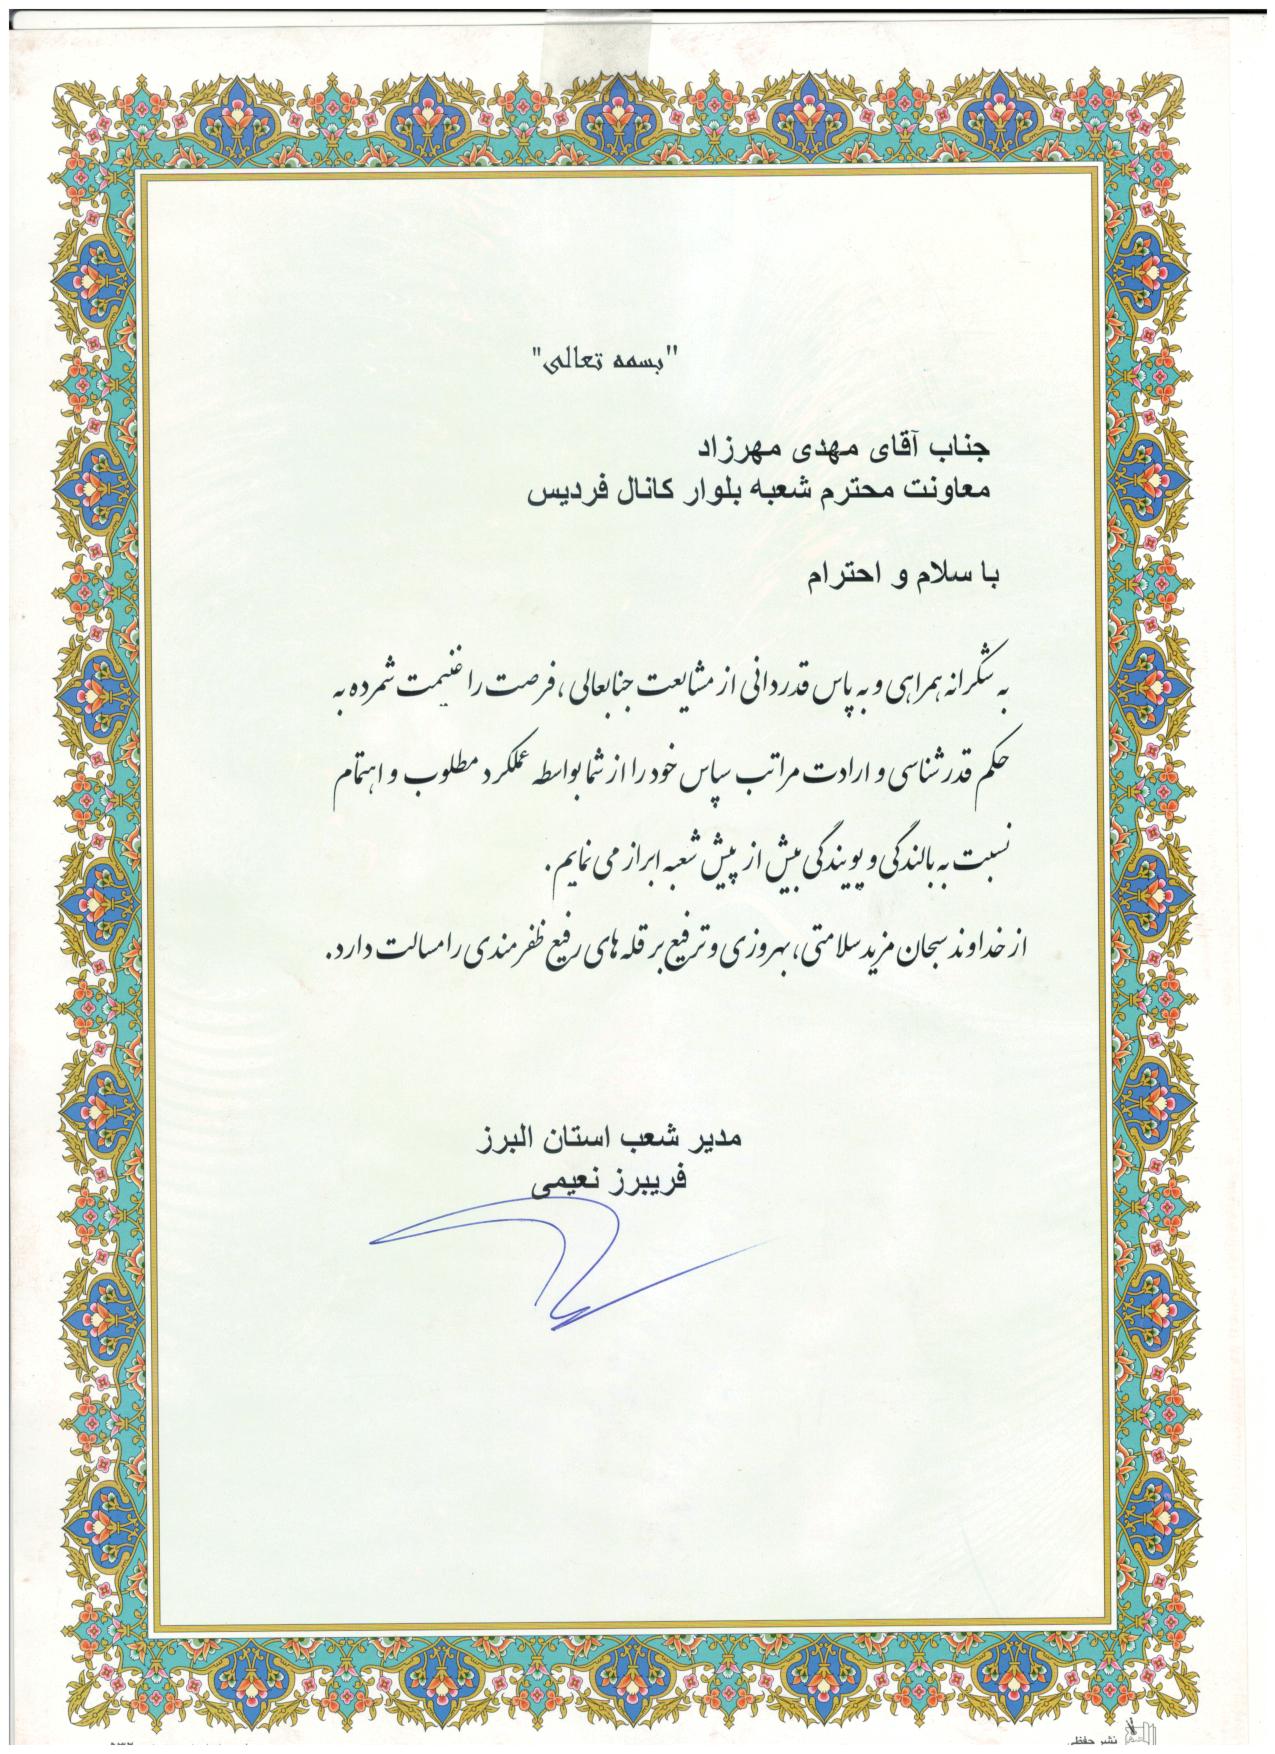 "بسمه تعالی"
جناب آقای مهدی مهرزاد
معاونت محترم شعبه بلوار کانال فردیس
با سلام و احترام
به شکرانه همراهی و به پاس قدردانی از مشایعت جنابعالی، فرصت را غنیمت شمرده به
حکم قدرشناسی و ارادت مراتب سپاس خود را از شما بواسطه عملکرد مطلوب و اهتمام
نسبت به بالندگی و پویندگی بیش از پیش شعبه ابراز می نمایم.
از خداوند سبحان مزید سلامتی، بهروزی و ترفیع بر قله های رفیع ظفرمندی را مسالت دارد.
مدیر شعب استان البرز
فریبرز نعیمی
نشر حفظی